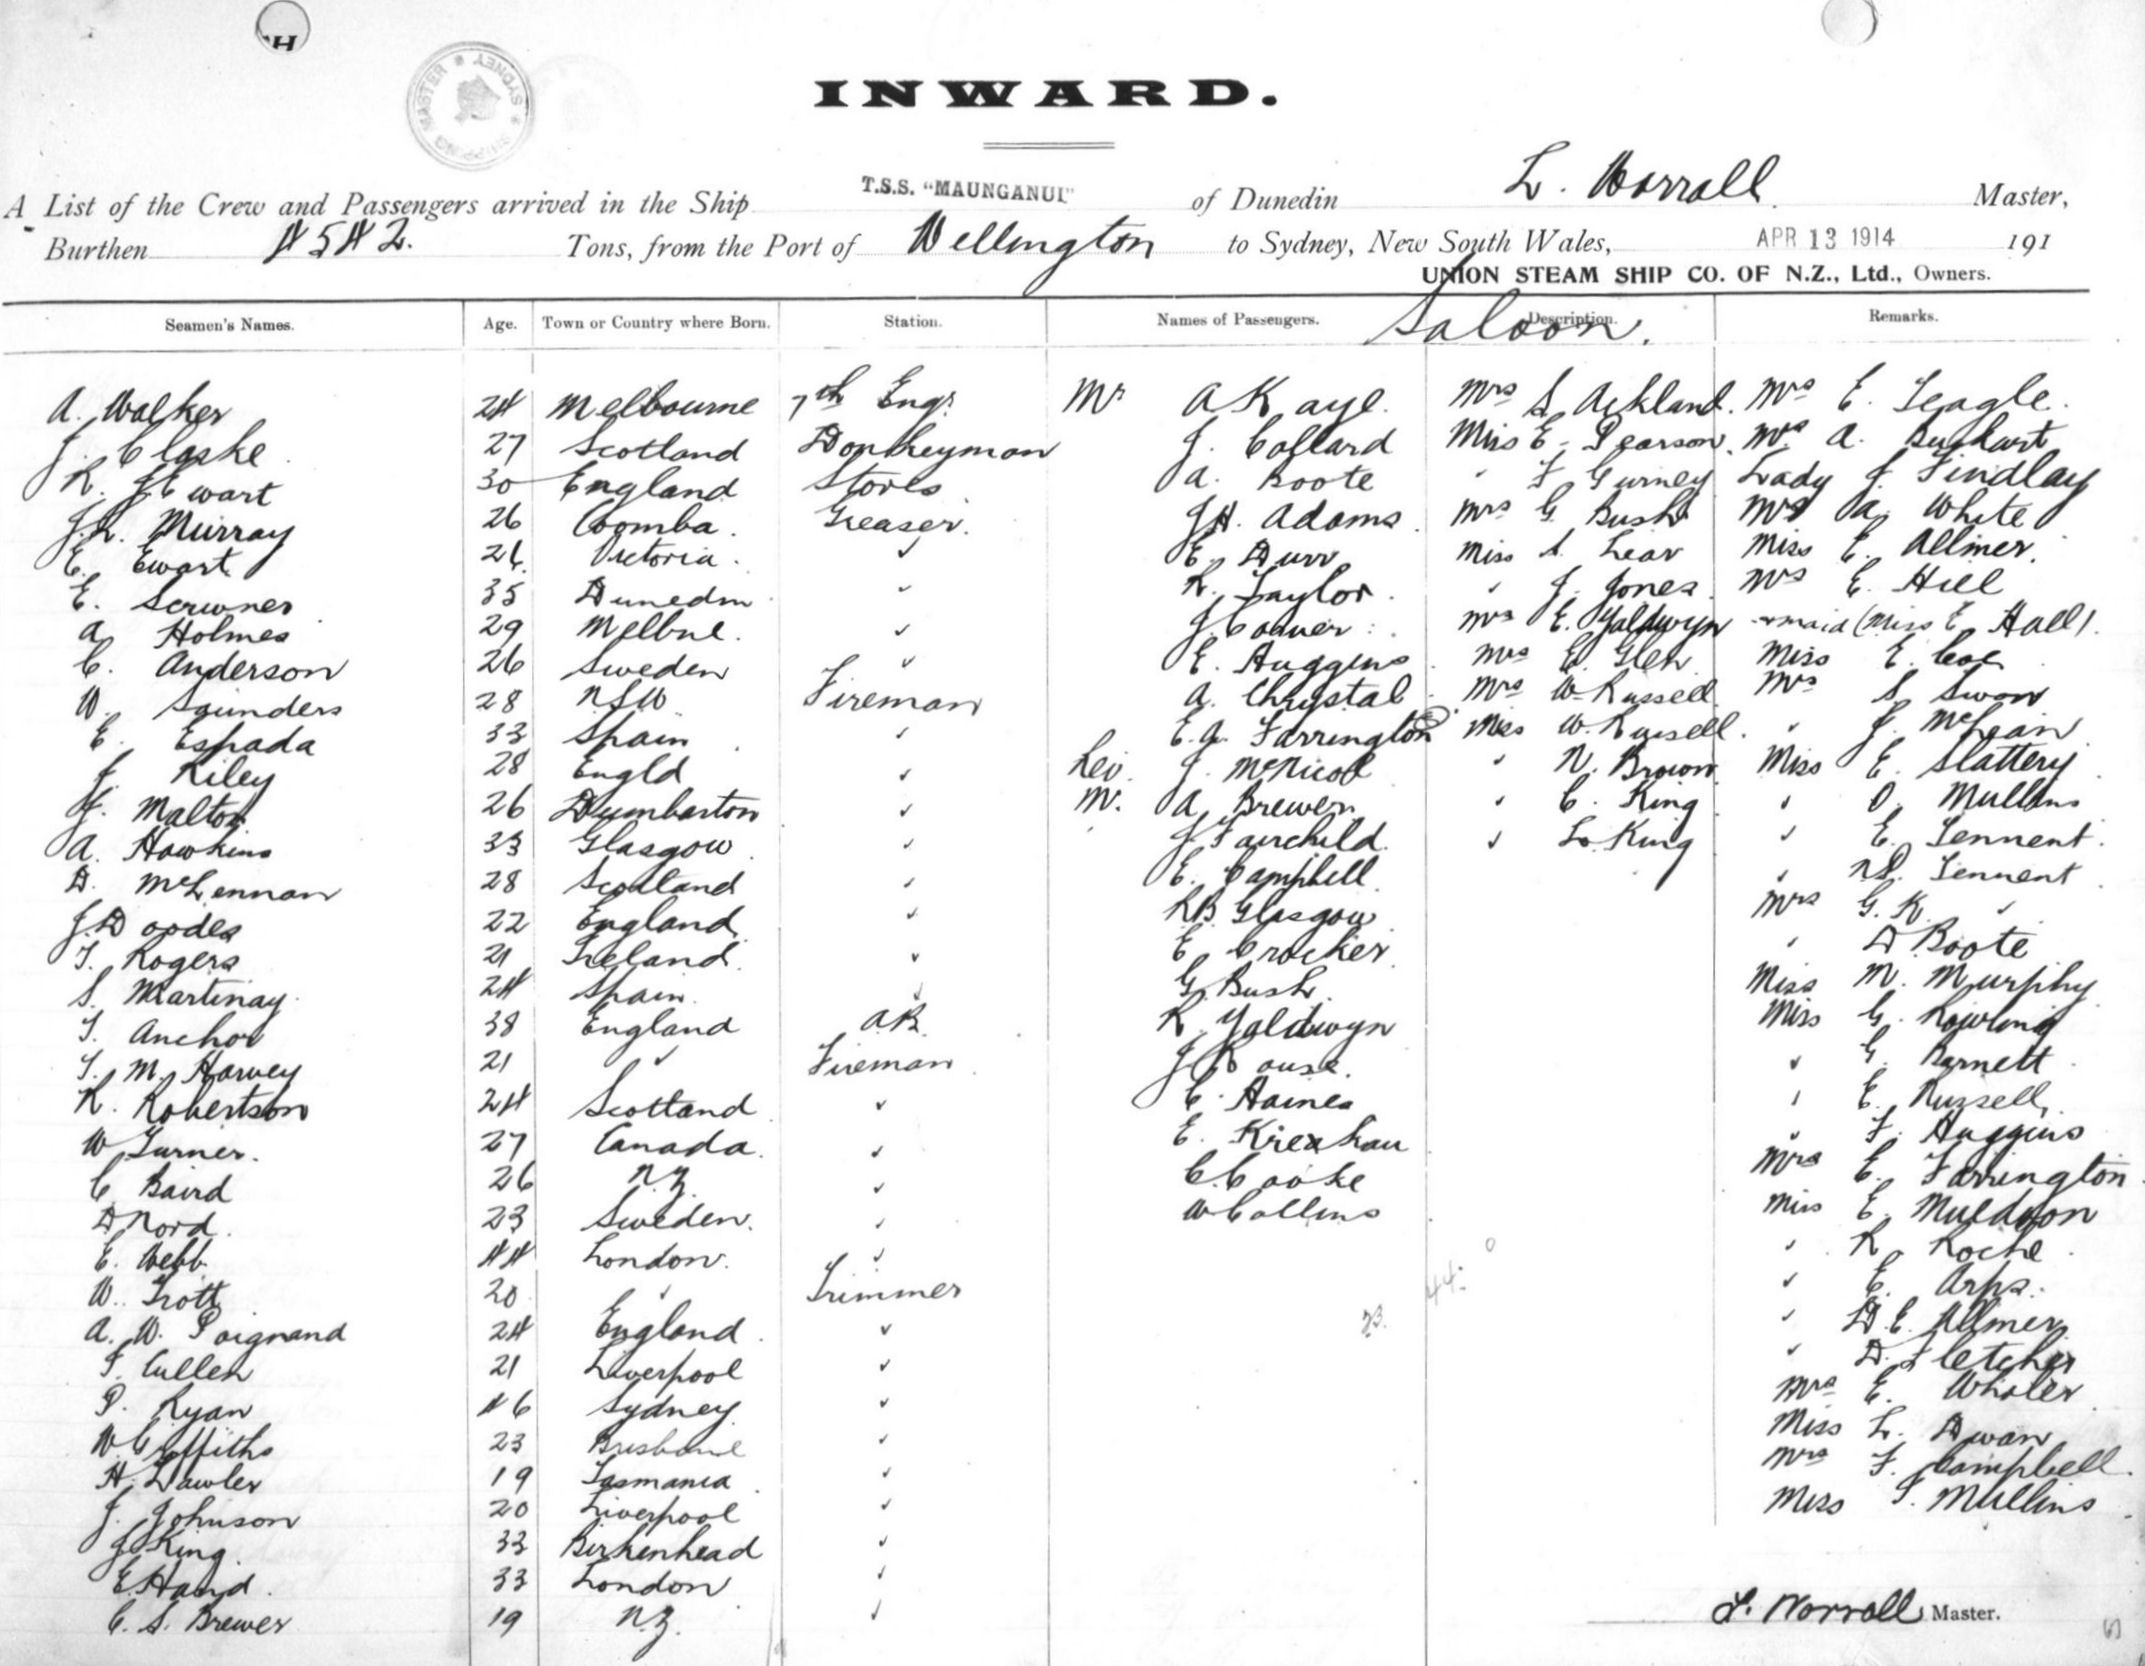 H
SHIPPING MASTER SYDNEY
INWARD.
A List of the Crew and Passengers arrived in the Ship T.S.S. "MAUNGANUI" of Dunedin L. Worrall Master,
Burthen 4542. Tons, from the Port of Wellington to Sydney, New South Wales, APR 13 1914 191
UNION STEAM SHIP CO. OF N.Z., Ltd., Owners.
Saloon.
Seamen's Names. Age. Town or Country where Born. Station. Names of Passengers. Description. Remarks.
A. Walker 24 Melbourne 7th Engr. Mr A Kaye. Mrs S Ackland. Mrs E. Teagle.
J. Clarke 27 Scotland Donkeyman J. Collard Miss E. Pearson. Mrs A.
R. J Ewart 30 England Stores A. Boote " F Gurney Lady J. Findlay
J.L. Murray 26 Coomba. Greaser. J H. Adams. Mrs G Bush Mrs A. White
E. Ewart 26. Victoria. " E. Durr Miss S. Lear Miss E. Allmer.
E. Scrivner 35 Dunedin " R. Taylor. " J. Jones. Mrs E. Hill
A. Holmes 29 Melbne. " J. Mrs E. Yaldwyn maid (Miss E Hall).
C. Anderson 26 Sweden " E. Huggins Mrs E. Glen Miss E. Coe
W. Saunders 28 NSW Fireman A. Chrystal Mrs W. Russell Mrs S Swan
E. Espada 33 Spain " E.A. Farrington Miss W. Russell. " J. McLean
J. Riley 28 Engld " Rev. J. McNicol " N. Brown Miss E. Slattery
J. Malton 26 Dumbarton " Mr. A. Brewer. " C. King " O. Mullins
A. Hawkins 33 Glasgow " J Fairchild. " L. King " E. Tennent.
D. McLennan 28 Scotland " E. Campbell " Tennent.
J. Dordes 22 England " R B Glasgow Mrs G. K. "
T. Rogers 21 Ireland. " E Crocker. " D Boote
S. Martinay. 24 Spain. " G. Bush. Miss M. Murphy
T. Anchor 38 England A.B. R. Yaldwyn Miss G. Rowling
T. M. Harvey 21 " Fireman J Rouse. " G. Barnett
R. Robertson 24 Scotland " C. Haines " E. Russell,
W Turner. 27 Canada. " E. " F. Huggins
C Baird 26 N.Z. " C. Cooke Mrs E. Farrington
D Nord. 23 Sweden. " W Collins Miss E. Muldoon
E. Webb. 44 London. " " R. Roche.
W. Trott 20 " Trimmer " E. Arps.
A. W. Poignand 24 England. " 23. 44. " D. E. Allmer
T. Cullen 21 Liverpool " " D. Fletcher
P. Ryan 46 Sydney. " Mrs E. Whaler
W Griffiths 23 Brisbane " Miss L. Dwan
H. Lawler 19 Tasmania. " Mrs F. Campbell.
J. Johnson 20 Liverpool " Miss T. Mullins
J. King. 33 Birkenhead "
E. Hand. 33 London "
C. S. Brewer 19 N.Z. "
L. Worrall Master.